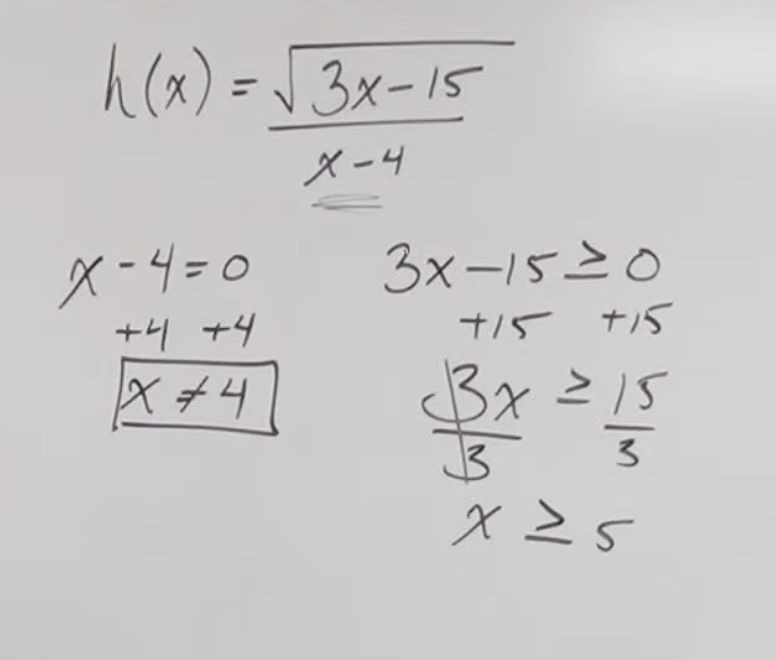 h(x) = √(3x-15)
x-4
x-4=0
+4 +4
x≠4
3x-15≥0
+15 +15
3x ≥ 15
3 3
x ≥ 5